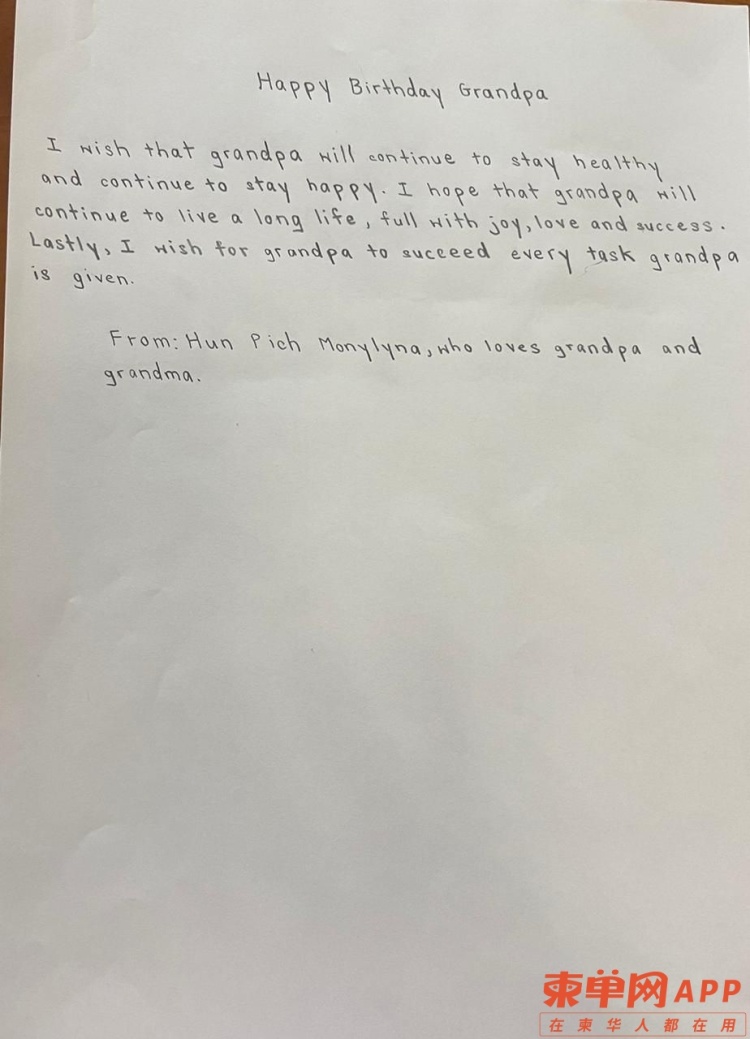 Happy Birthday Grandpa
I wish that grandpa will continue to stay healthy
and continue to stay happy. I hope that grandpa will
continue to live a long life, full with joy, love and success.
Lastly, I wish for grandpa to succeed every task grandpa
is given.
From: Hun Pich Monylyna, who loves grandpa and
grandma.
柬单网APP
在柬华人都在用